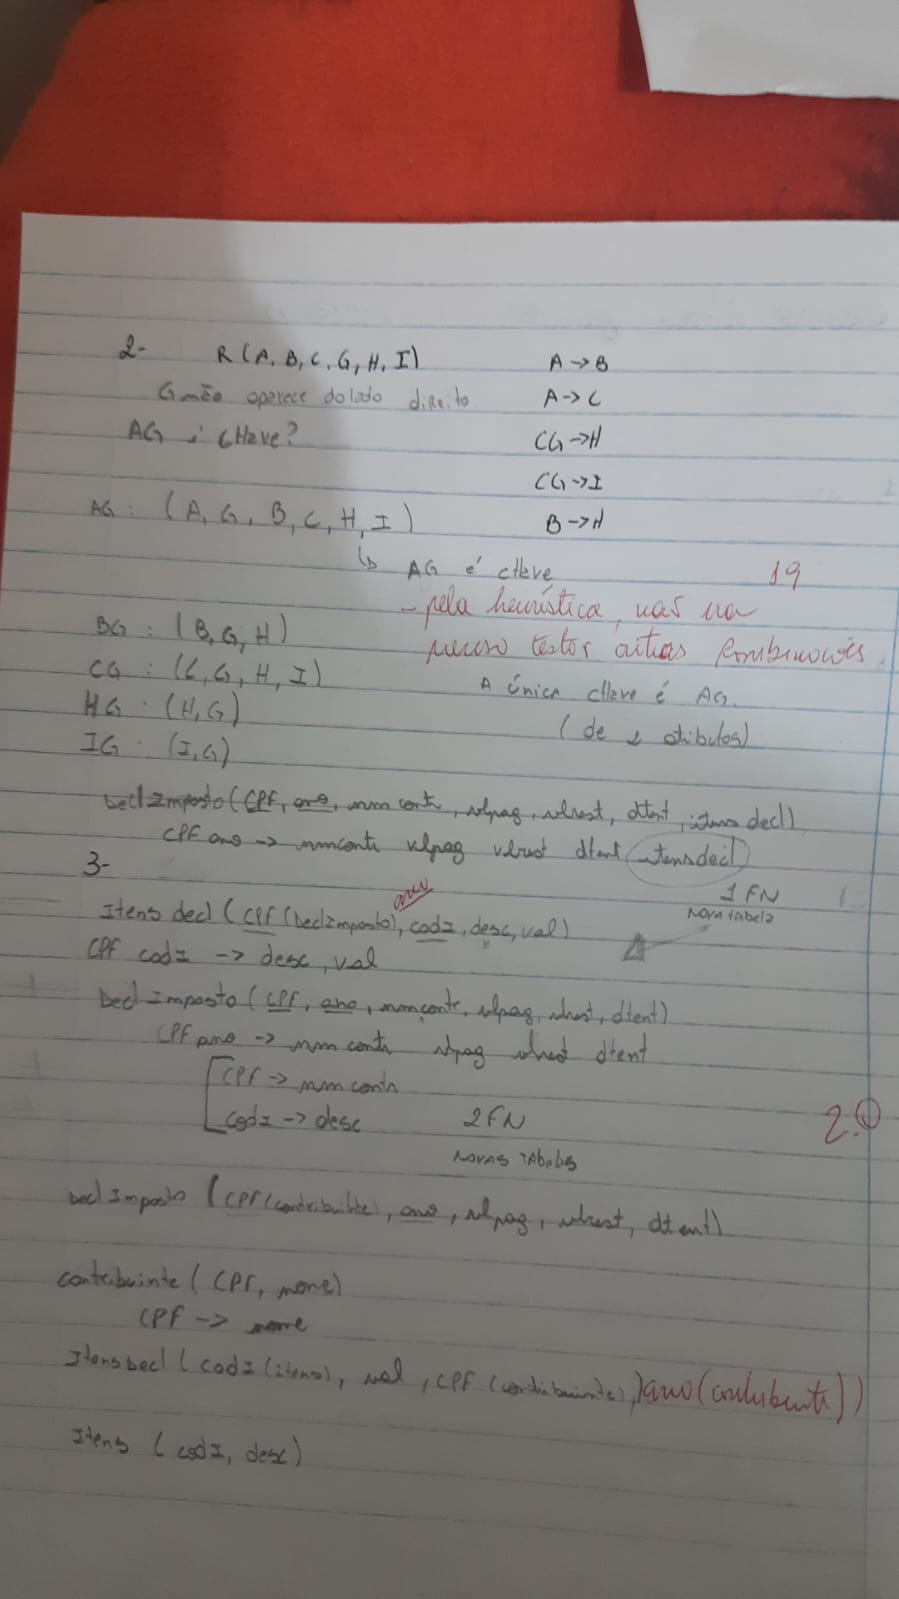 2- R(A, B, C, G, H, I) A->B
G não aparece do lado direito A->C
AG é CHave? CG->H
CG->I
AG: (A, G, B, C, H, I) B->H
↳ AG é cHave 19
- pela heurística, mas
preciso testar outras combinações
BG: (B, G, H)
CG: (C, G, H, I) A única cHave é AG.
HG: (H, G) (de 2 atributos)
IG: (I, G)
DeclImposto (CPF, ano, nmcontr, vlpag, vlrest, dtent, itensdecl)
CPF ano -> nmcontr vlpag vlrest dtent itensdecl
3-
1FN
Nova tabela
ano
Itens decl (CPF (DeclImposto), codI, desc, val)
CPF codI -> desc, val
Decl Imposto (CPF, ano, nmcontr, vlpag, vlrest, dtent)
CPF ano -> nmcontr vlpag vlrest dtent
CPF -> nmcontr
codI -> desc 2FN 2.0
Novas Tabelas
Decl Imposto (CPF (contribuinte), ano, vlpag, vlrest, dtent)
contribuinte (CPF, nome)
CPF -> nome
ItensDecl (codI (itens), val, CPF (contribuinte), ano (contribuinte))
Itens (codI, desc)